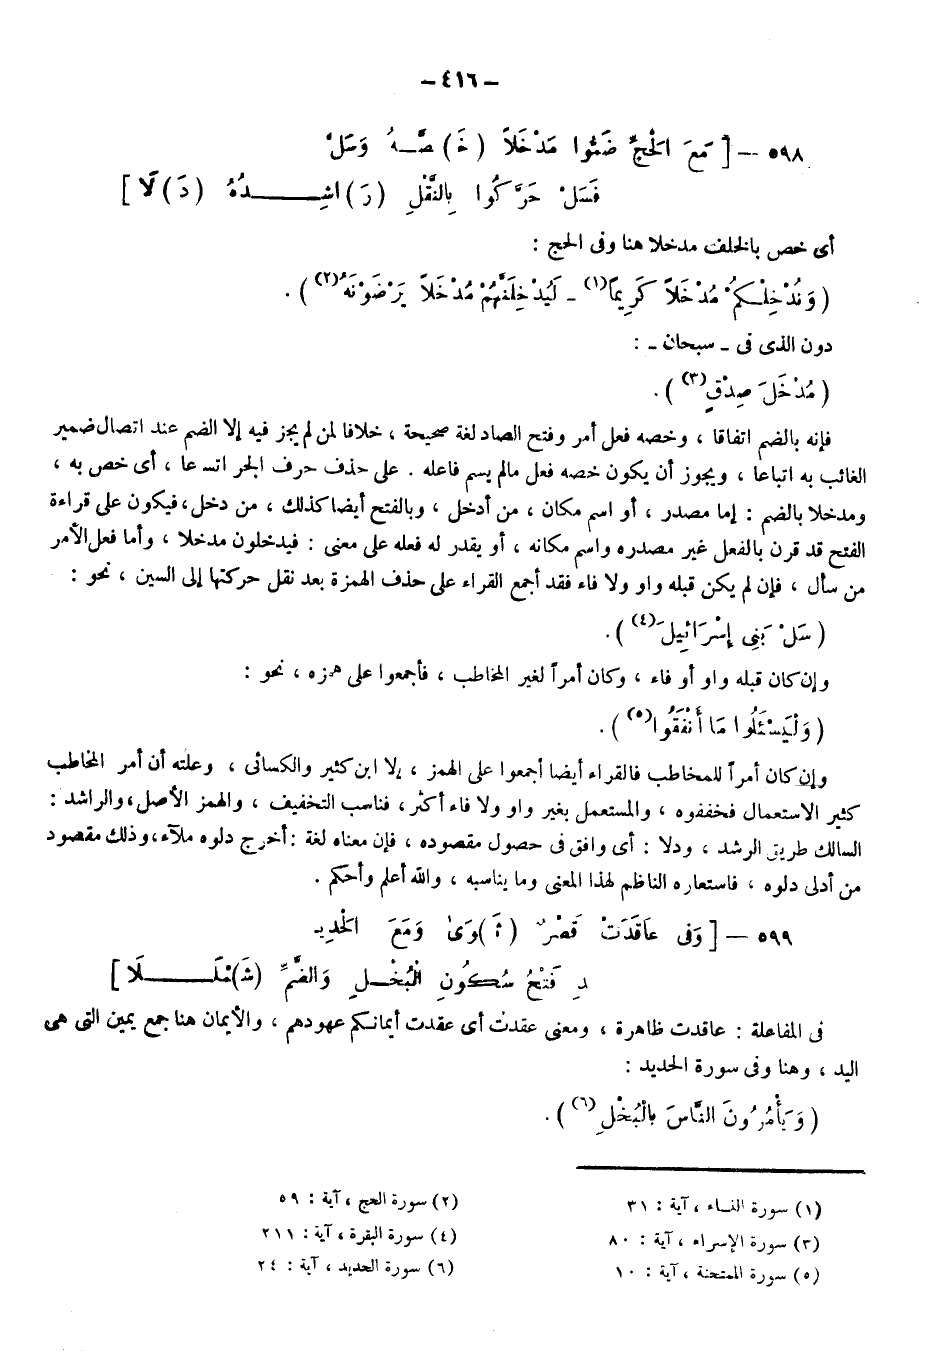 – ٤١٦ –
٥٩٨ – [ مَعَ الْحَجِّ ضَمُّوا مَدْخَلاً (خَ)صَّـهُ وَسَلْ
فَسَلْ حَرَّكُوا بِالنَّقْلِ (رَ)اشِـــدُهُ (دَ)لَا ]
أى خص بالخلف مدخلا هنا وفى الحج :
( وَنُدْخِلْـكُمْ مُدْخَلاً كَرِيمًا(١) ـ لَيُدْخِلَنَّهُمْ مُدْخَلاً يَرْضَوْنَهُ(٢) ) .
دون الذى فى ـ سبحان ـ :
( مُدْخَلَ صِدْقٍ(٣) ) .
فإنه بالضم اتفاقا ، وخصه فعل أمر وفتح الصاد لغة صحيحة ، خلافا لمن لم يجز فيه إلا الضم عند اتصال ضمير
الغائب به اتباعا ، ويجوز أن يكون خصه فعل مالم يسم فاعله . على حذف حرف الجر اتساعا ، أى خص به ،
ومدخلا بالضم : إما مصدر ، أو اسم مكان ، من أدخل ، وبالفتح أيضا كذلك ، من دخل ، فيكون على قراءة
الفتح قد قرن بالفعل غير مصدره واسم مكانه ، أو يقدر له فعله على معنى : فيدخلون مدخلا ، وأما فعل الأمر
من سأل ، فإن لم يكن قبله واو ولا فاء فقد أجمع القراء على حذف الهمزة بعد نقل حركتها إلى السين ، نحو :
( سَلْ بَنِى إِسْرَائِيلَ(٤) ) .
وإن كان قبله واو أو فاء ، وكان أمراً لغير المخاطب ، فأجمعوا على همزه ، نحو :
( وَلْيَسْئَلُوا مَا أَنْفَقُوا(٥) ) .
وإن كان أمراً للمخاطب فالقراء أيضا أجمعوا على الهمز ، إلا ابن كثير والكسائى ، وعلته أن أمر المخاطب
كثير الاستعمال فخففوه ، والمستعمل بغير واو ولا فاء أكثر ، فناسب التخفيف ، والهمز الأصل ، والراشد :
السالك طريق الرشد ، ودلا : أى وافق فى حصول مقصوده ، فإن معناه لغة : أخرج دلوه ملآء ، وذلك مقصود
من أدلى دلوه ، فاستعاره الناظم لهذا المعنى وما يناسبه ، والله أعلم وأحكم .
٥٩٩ – [ وَفى عَاقَدَتْ قَصْرٌ (ثَ)وَىٰ وَمَعَ الْحَدِيـ
دِ فَتْحُ سُكُونِ الْبُخْـلِ وَالضَّمِّ (شَ)مْلَــلَا ]
فى المفاعلة : عاقدت ظاهرة ، ومعنى عقدت أى عقدت أيمانكم عهودهم ، والأيمان هنا جمع يمين التى هى
اليد ، وهنا وفى سورة الحديد :
( وَيَأْمُرُونَ النَّاسَ بِالْبُخْلِ(٦) ) .
(١) سورة النساء ، آية : ٣١
(٢) سورة الحج ، آية : ٥٩
(٣) سورة الإسراء ، آية : ٨٠
(٤) سورة البقرة ، آية : ٢١١
(٥) سورة الممتحنة ، آية : ١٠
(٦) سورة الحديد ، آية : ٢٤